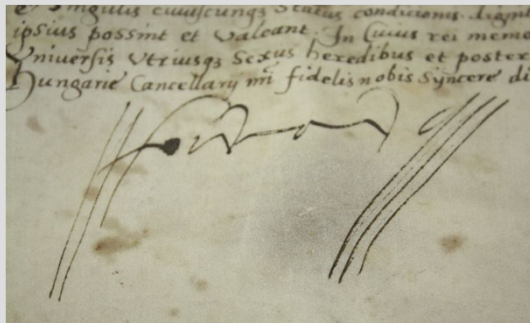 Singulis cuiuscunqz Status condicionis dign
ipsius possint et valeant. In Cuius rei memo
Vniversis Vtriusqz Sexus heredibus et poster
Hungarie Cancellarij nri fidelis nobis Syncere di